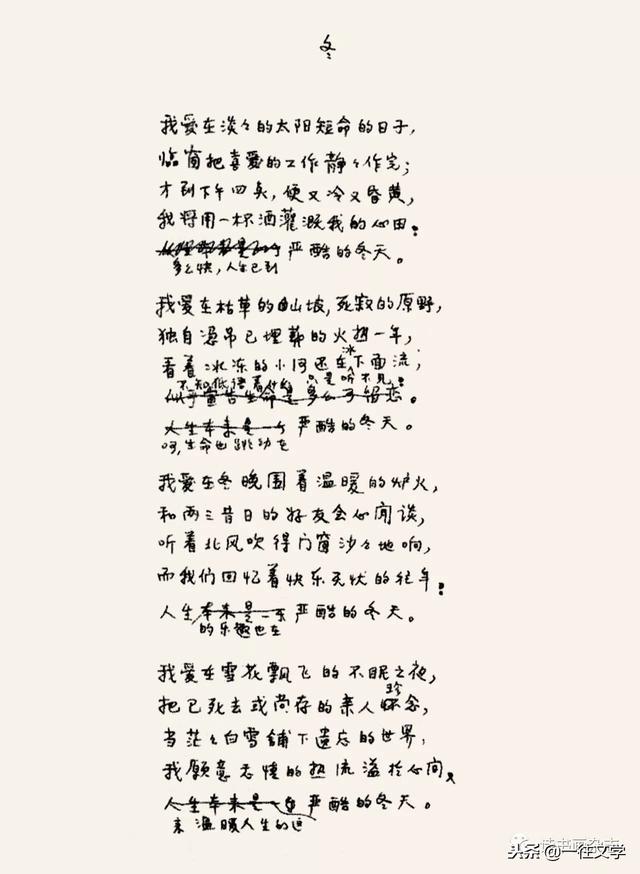 冬
我爱在淡々的太阳短命的日子，
临窗把喜爱的工作静々作完；
才到下午四点，便又冷又昏黄，
我将用一杯酒灌溉我的心田：
严酷的冬天。
多么快，人生已到
我爱在枯草的山坡，死寂的原野，
独自凭吊已埋葬的火热一年，
冰
看着冰冻的小河还在下面流，
不知低语着什么 只是听不见：
似乎宣告生命是多么可留恋。
人生本来是一个严酷的冬天。
呵，生命也跳动在
我爱在冬晚围着温暖的炉火，
和两三昔日的好友会心闲谈，
听着北风吹得门窗沙々地响，
而我们回忆着快乐无忧的往年：
人生本来是一个严酷的冬天。
的乐趣也在
我爱在雪花飘飞的不眠之夜，
珍
把已死去或尚存的亲人怀念，
当茫々白雪铺下遗忘的世界，
我愿意的热流溢于心间，
人生本来是一个严酷的冬天。
来温暖人生的这
读书杂志
头条@一往文学